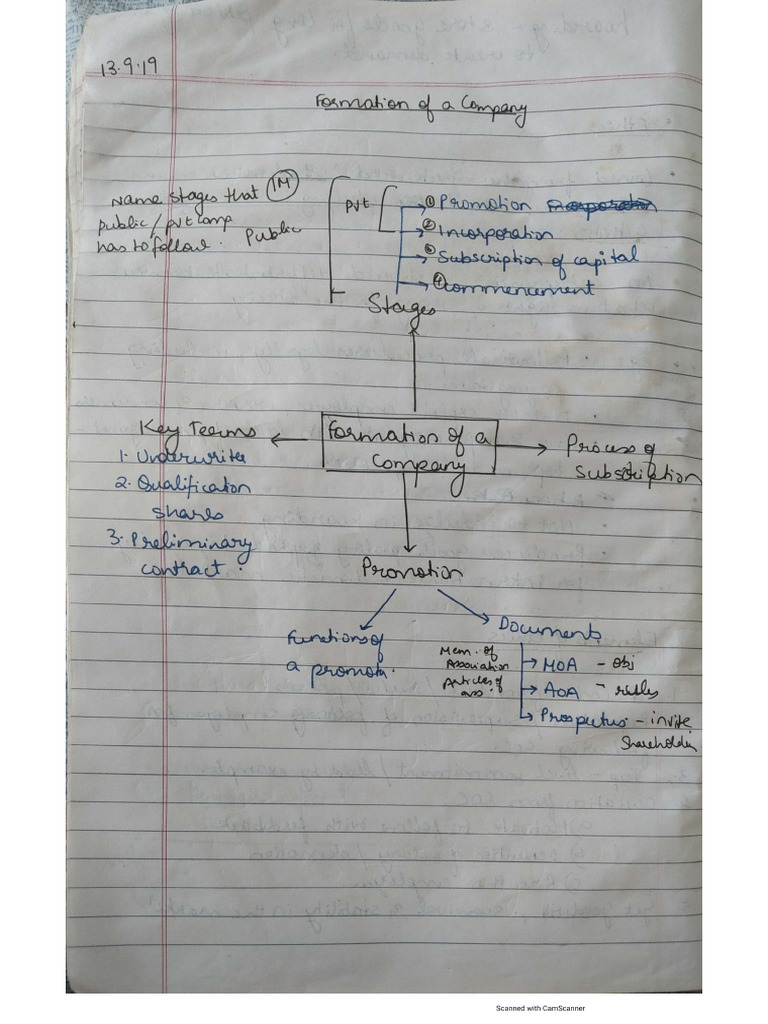 13.9.19
Formation of a Company
Name stages that (1M)
public/pvt comp
has to follow.
Public
Pvt
① Promotion
② Incorporation
③ Subscription of capital
④ Commencement
Stages
Key Terms
1. Underwriter
2. Qualification
shares
3. Preliminary
contract.
Formation of a
Company
Process of
Subscription
Promotion
Functions of
a promoter.
Documents
Mem. of
Association
MOA - obj
Articles of
ass.
AOA - rules
Prospectus - invite
Shareholder
Scanned with CamScanner